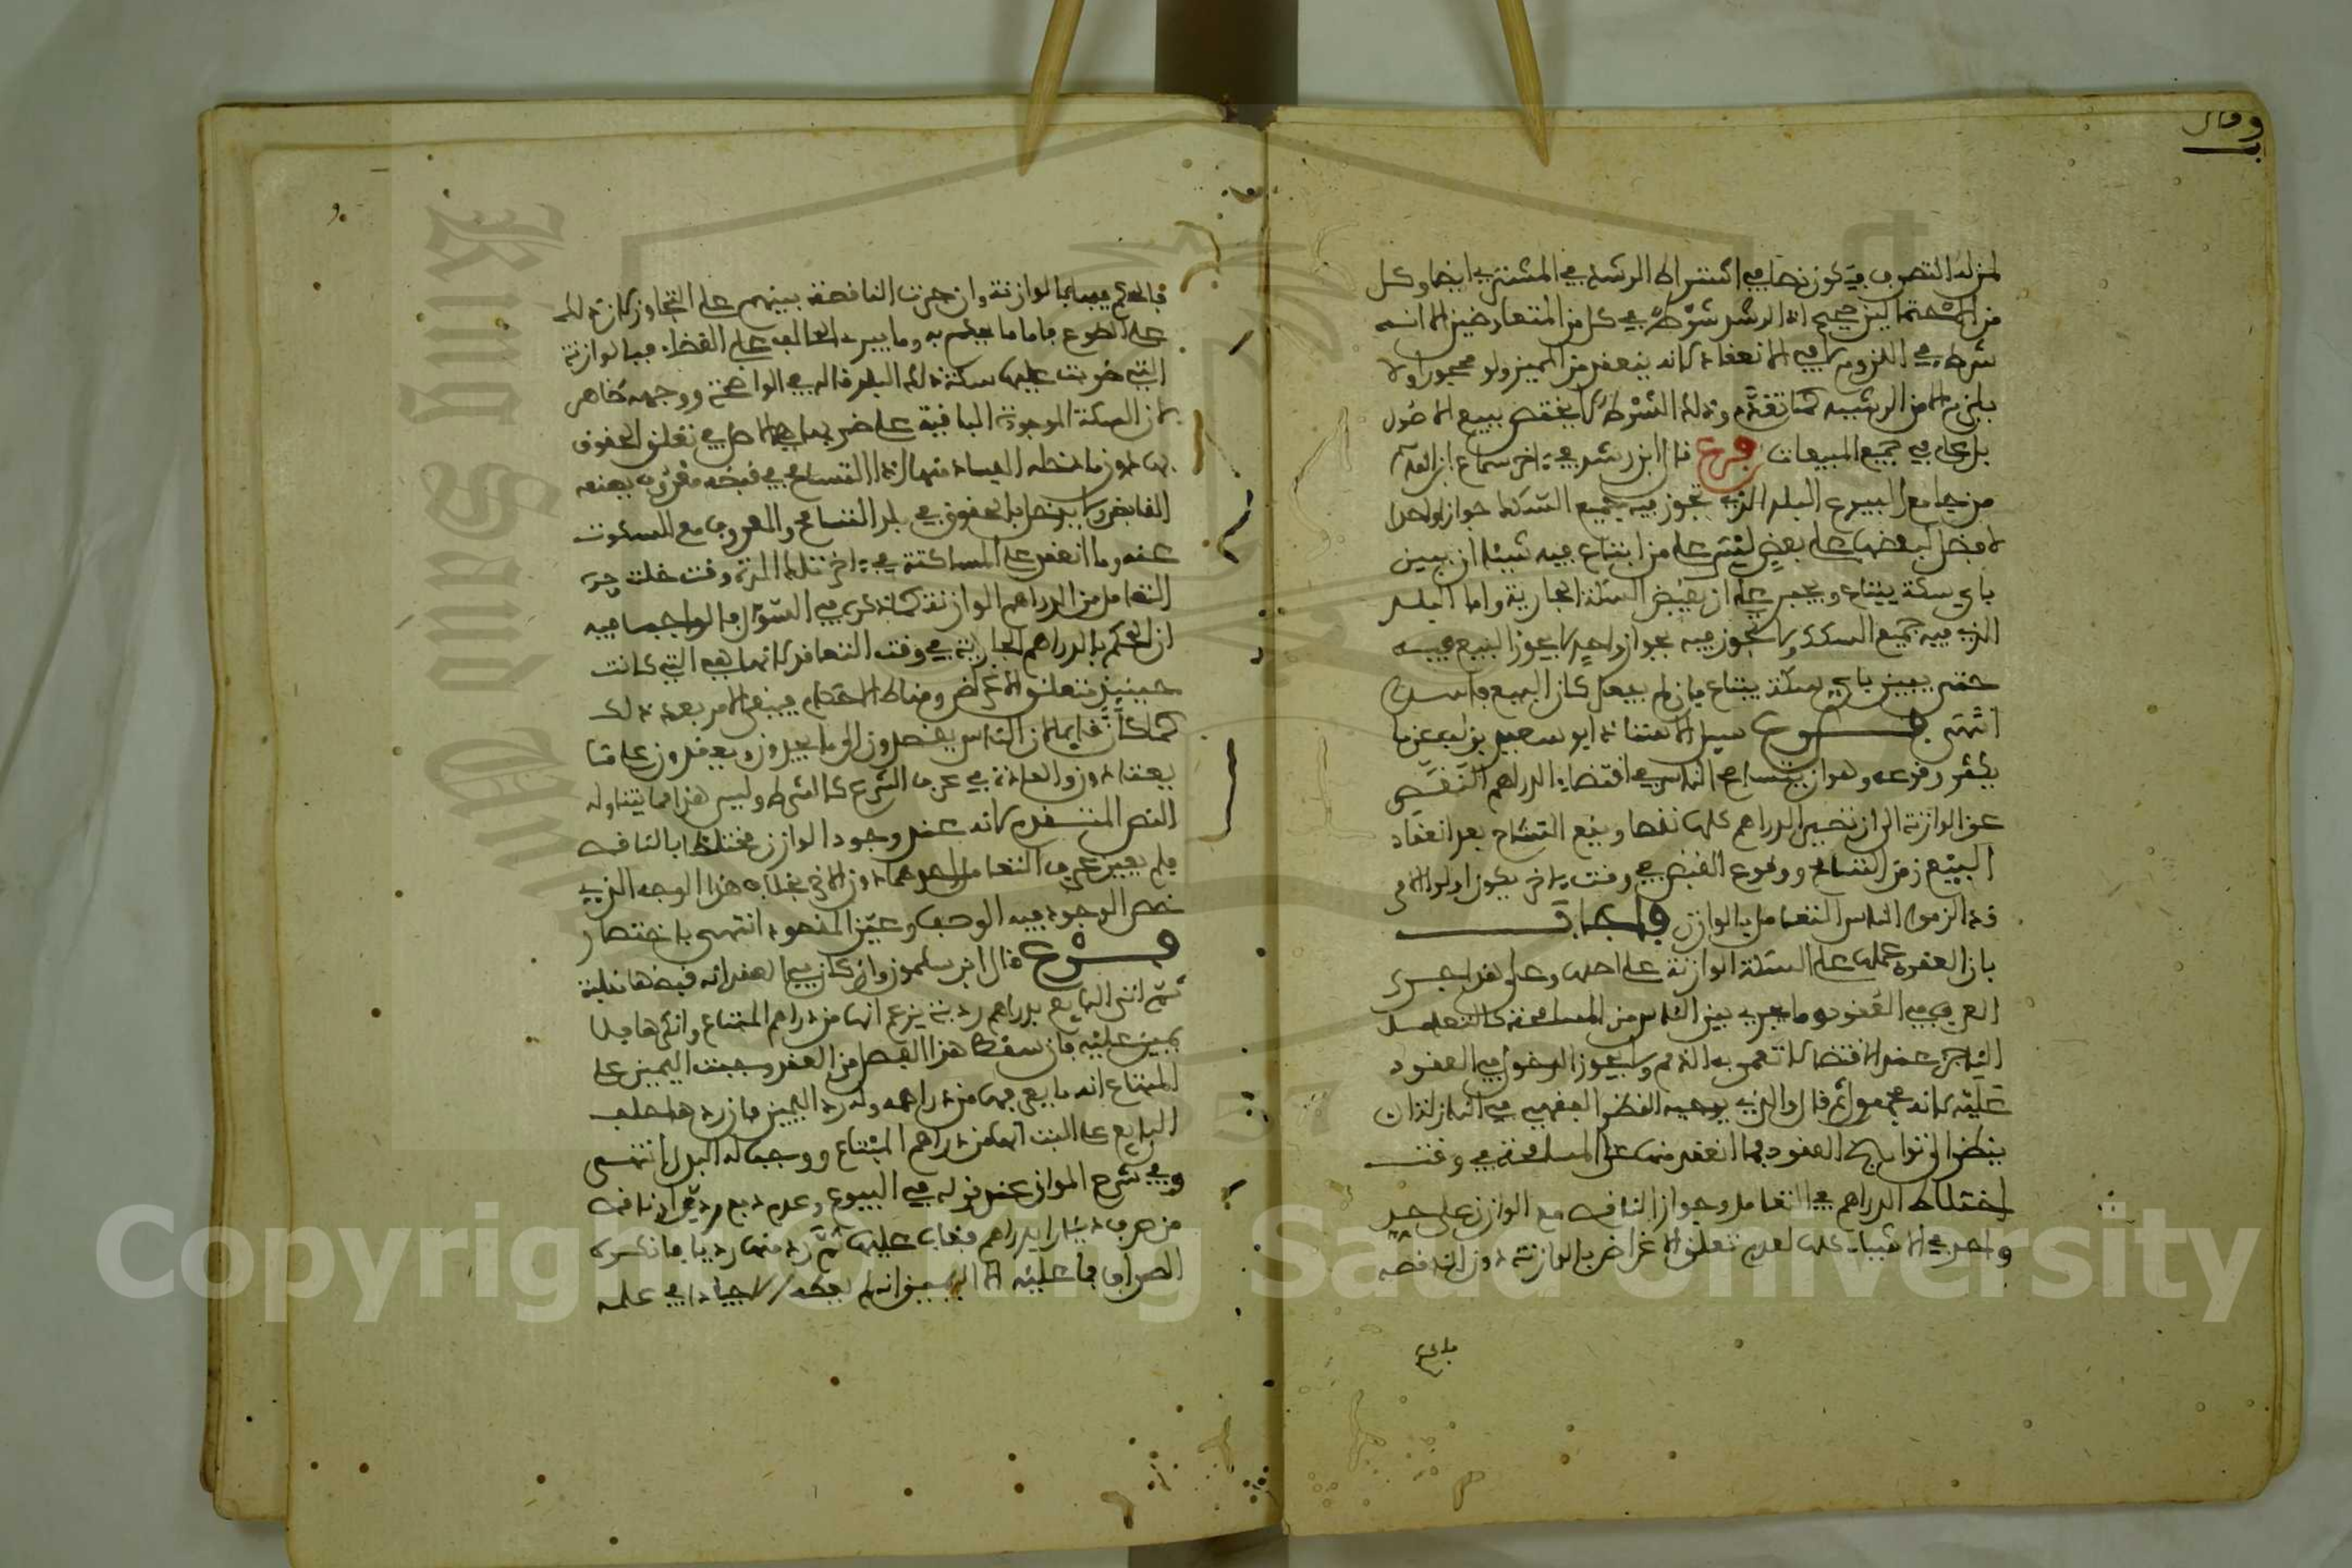 وقال
لمن له التصرف فيكون نصا في اشتراط الرشد في المشتري ايضا وكل
من صحيح اذ الرشد شرط في كل من المتعاوضين الا انه
شرط في اللزوم لا في الانعقاد لانه ينعقد من المميز ولو محجورا ولا
يلزم الا من الرشيد كما تقدم وذلك الشرط لا يختص ببيع الاصول
بل عام في جميع المبيعات فرع قال ابن رشد في اخر سماع ابن القاسم
من جامع البيوع البلد الذي تجوز فيه جميع السكك جوازا واحدا
لا فضل لبعضها على بعض ليس على من ابتاع فيه شيئا ان يبين
باي سكة يبتاع ويجبر على ان يقبض السكة الجارية واما البلد
الذي فيه جميع السكك ولا تجوز فيه بجواز واحد لا يجوز البيع فيه
حتى يبين باي سكة يبتاع فان لم يفعل كان البيع فاسدا
انتهى فرع سيل الاستاذ ابو سعيد بن لب عما
يكثر وقوعه وهو ان يتسامح الناس في اقتضاء الدراهم النقص
عن الوازنة الى ان تصير الدراهم كلها نقصا ويقع التشاح بعد انعقاد
البيع زمن التسامح ووقوع القبض في وقت اخر يكون اولو الامر
قد الزموا الناس التعامل بالوازن فاجاب
بان العقود عملت على السكة الوازنة على اصلها وعلى هذا جرى
العرف في العقود وما يجري بين الناس من المسامحة كالتعامل
الناجز عند الاقتضا لا تعمر به الذمم ولا يجوز الدخول في العقود
عليه لانه مجهول ثم قال والذي يوجبه النظر الفقهي في النازلة ان
ينظر الى تواريخ العقود فما انعقد منها على المسامحة في وقت
اختلاط الدراهم في التعامل وجواز الناقص مع الوازن على حد
واحد في الاشياء كلها لعدم تعلق الاغراض بالوازنة دون الناقصة
فالحكم
فالحكم فيها بالوازنة وان جرت الناقصة بينهم على التجاوز كان ذلك
على الطوع فاما ما يحكم به وما يبرء الطالب على القضاء فبالوازنة
التي ضربت عليها سكة ذلك البلد قاله في الواضحة ووجهه ظاهر
لان السكة الموجودة الباقية على ضربها هي الاصل في تعلق الحقوق
بها دون ما دخله الفساد منها اذ التسامح في قبضه مقرون بصنعه
القابض ولا يدخل بالحقوق في بلد التسامح والمعروف مع السكوت
عنه وما انعقد على المساكتة في اخر تلك المدة وقت خلت فيه
التعامل من الدراهم الوازنة كما ذكر في السؤال فالواجب فيه
ان الحكم بالدراهم الجارية في وقت التعاقد لانها هي التي كانت
حينيذ متعلق الاغراض ومناط الاحكام فيبقى الامر بعد ذلك
كما كان قايما لان الناس يقصدون الى ما يجدون ويعقدون على ما
يعتادون والعادة في عرف الشرع كالشرط وليس هذا مما يتناوله
النص المتقدم لانه عند وجود الوازن مختلطا بالناقص
فلم يعين عرف التعامل احدهما دون الاخر بخلاف هذا الوجه الذي
خص الوجود فيه الوصف وعين المنعوت انتهى باختصار
فرع قال ابن سلمون وان كان في العقد انه قبضها
ثم اتى البايع بدراهم ردية يزعم انها من دراهم المبتاع وانكرها فلا
يمين عليه فان سقط هذا الفصل من العقد وجبت اليمين على
المبتاع انه ما يعرفها من دراهمه وله رد اليمين فان ردها حلف
البايع على البت انها من دراهم المبتاع ووجب له البدل انتهى
وفي شرح المواق عند قوله في البيوع وعدم دفع ردي او ناقص
من صرف دينارا بدراهم فغاب عليها ثم رد منها رديا فانكره
الصراف فما عليه الا اليمين انه لم يعطه الا جيادا في علمه